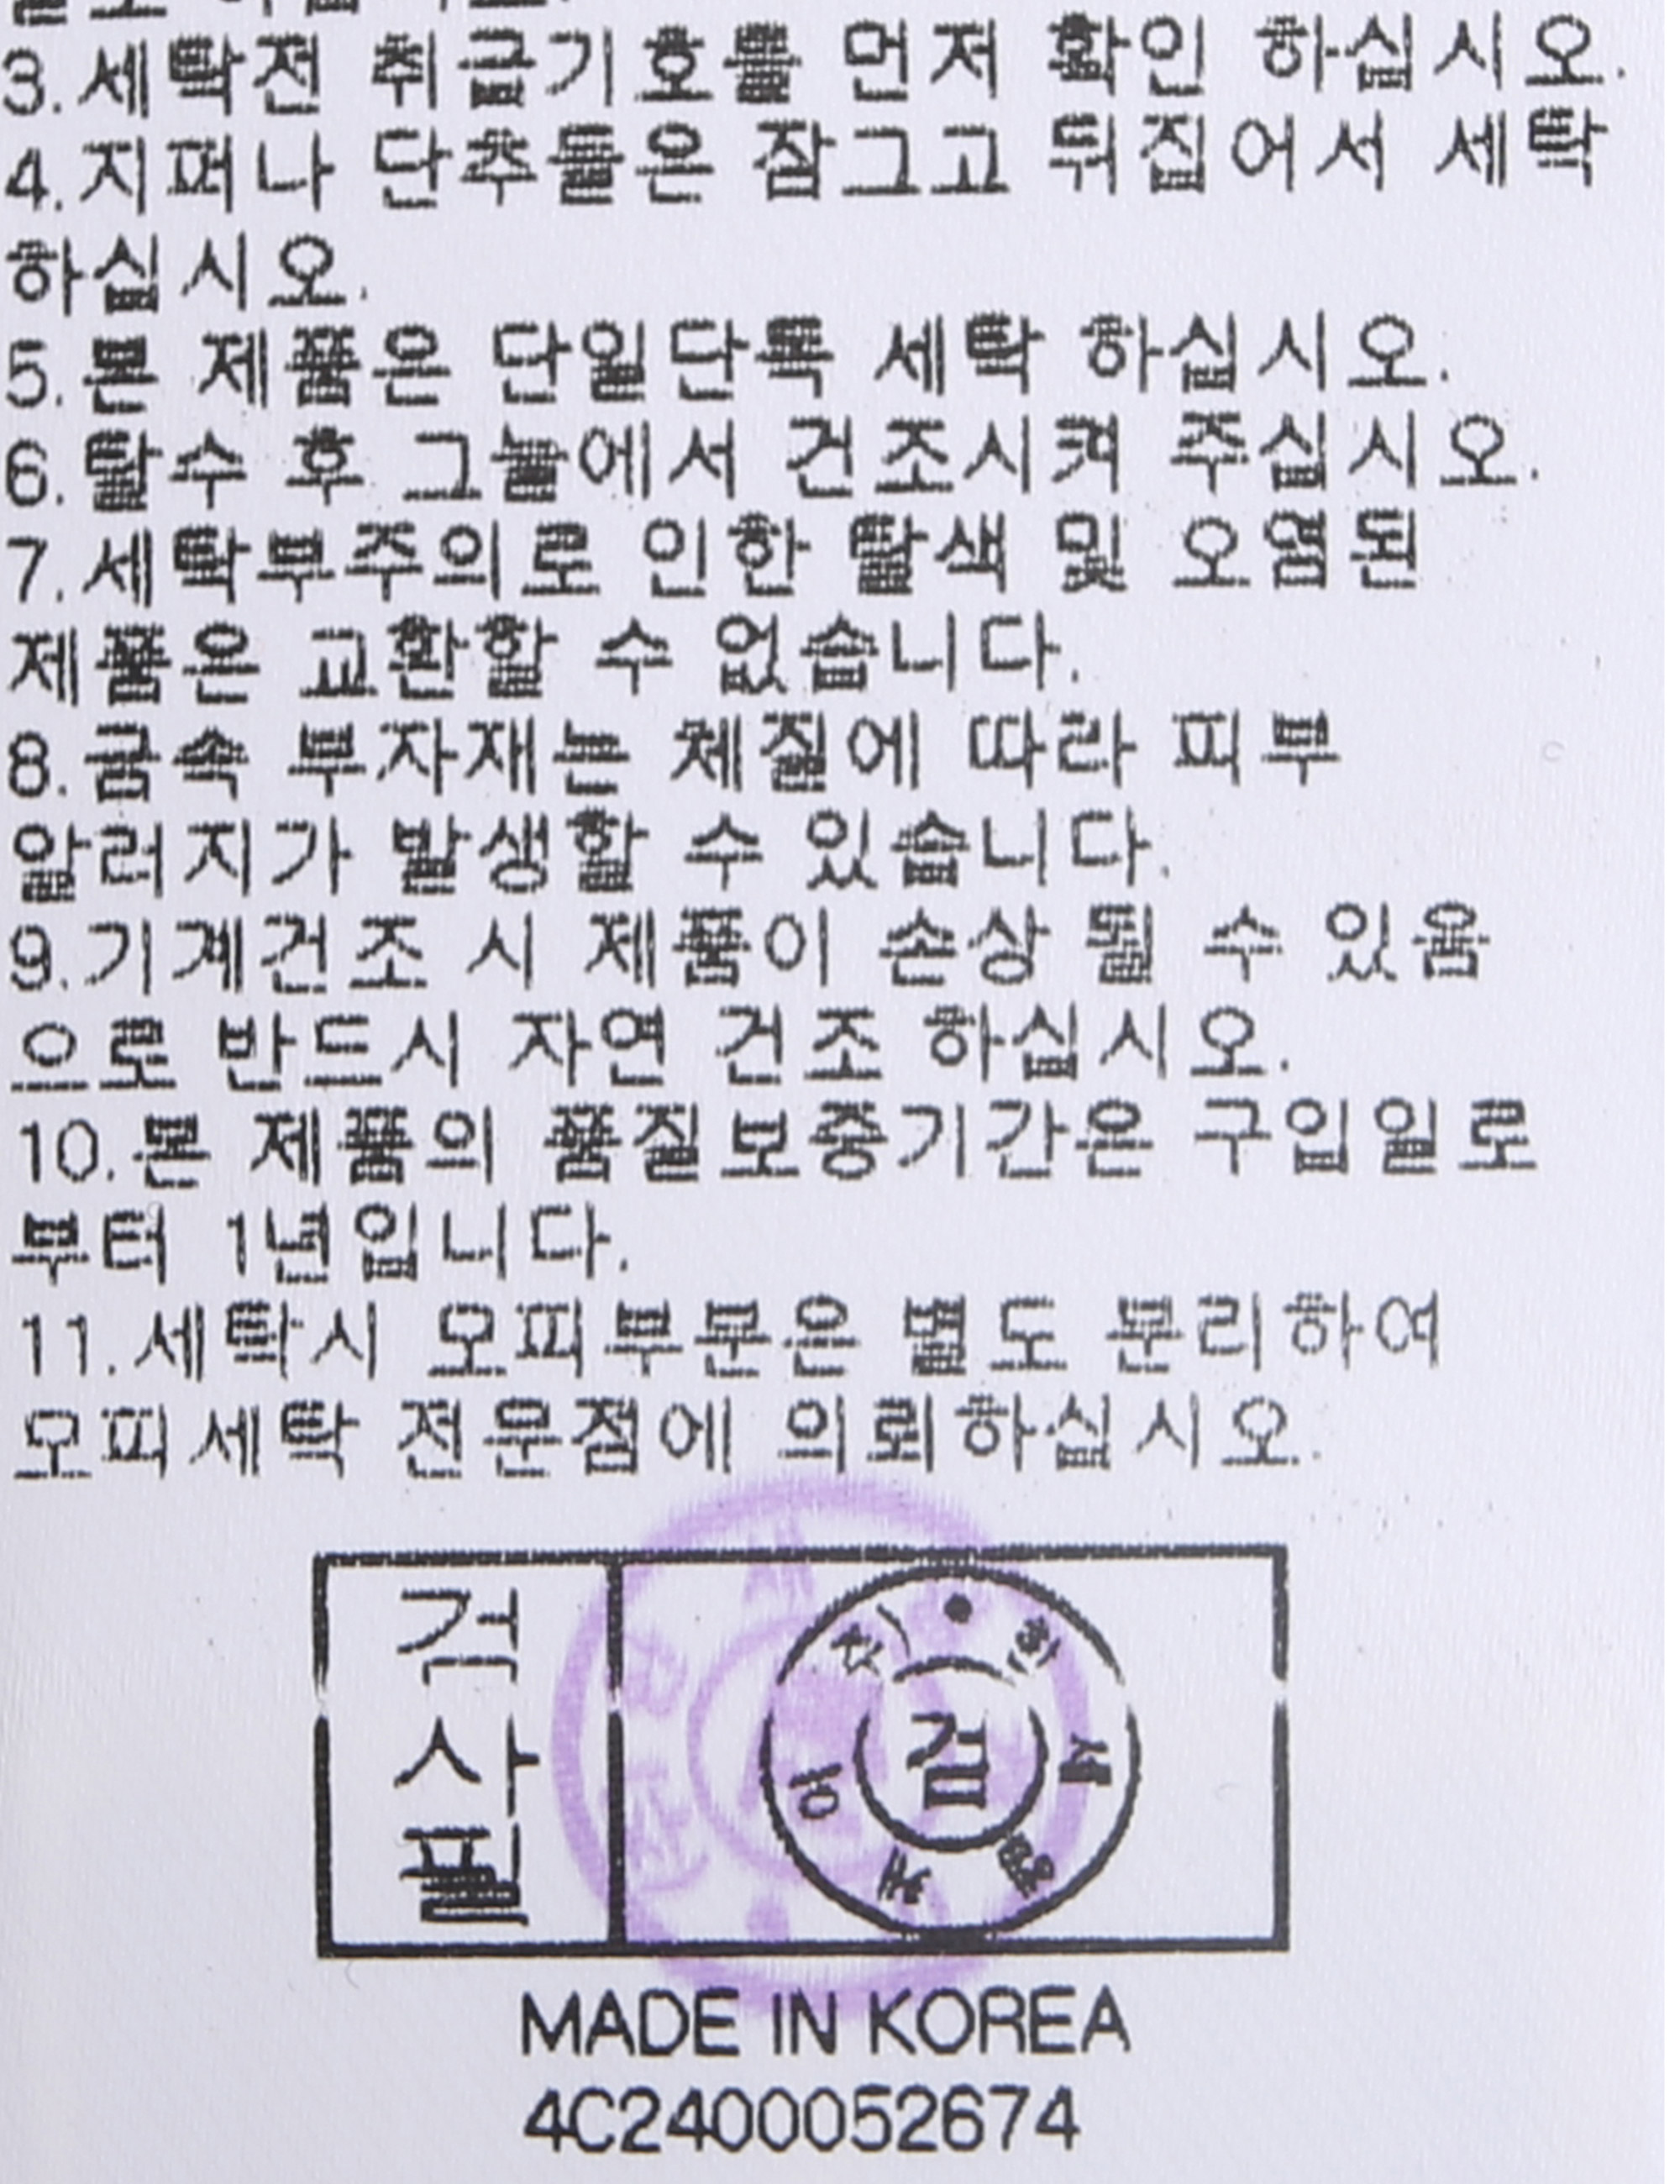 3.세탁전 취급기호를 먼저 확인 하십시오.
4.지퍼나 단추들은 잠그고 뒤집어서 세탁
하십시오.
5.본 제품은 단일단톡 세탁 하십시오.
6.탈수 후 그늘에서 건조시켜 주십시오.
7.세탁부주의로 인한 탈색 및 오염된
제품은 교환할 수 없습니다.
8.금속 부자재는 체질에 따라 피부
알러지가 발생할 수 있습니다.
9.기계건조 시 제품이 손상 될 수 있음
으로 반드시 자연 건조 하십시오.
10.본 제품의 품질보증기간은 구입일로
부터 1년입니다.
11.세탁시 모피부분은 별도 분리하여
모피세탁 전문점에 의뢰하십시오.
검
사
필
검
MADE IN KOREA
4C2400052674